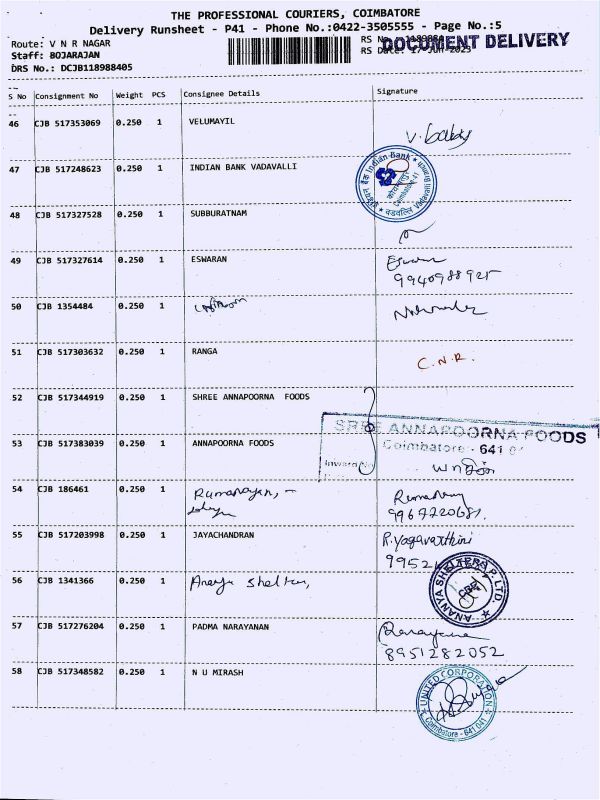 THE PROFESSIONAL COURIERS, COIMBATORE
Delivery Runsheet - P41 - Phone No.:0422-3505555 - Page No.:5
Route: V N R NAGAR
RS No.
DOCUMENT DELIVERY
Staff: BOJARAJAN
RS Date: 17 Jun 2023
DRS No.: DCJB118988405
S No Consignment No Weight PCS Consignee Details Signature
46 CJB 517353069 0.250 1 VELUMAYIL V. baby
47 CJB 517248623 0.250 1 INDIAN BANK VADAVALLI
Indian Bank
48 CJB 517327528 0.250 1 SUBBURATNAM
49 CJB 517327614 0.250 1 ESWARAN Eswaran
9940988925
50 CJB 1354484 0.250 1
51 CJB 517303632 0.250 1 RANGA C.N.R.
52 CJB 517344919 0.250 1 SHREE ANNAPOORNA FOODS
SREE ANNAPOORNA FOODS
53 CJB 517383039 0.250 1 ANNAPOORNA FOODS
Coimbatore - 641
Inward No
54 CJB 186461 0.250 1 Ramanayan,
9967720681.
55 CJB 517203998 0.250 1 JAYACHANDRAN
9952
56 CJB 1341366 0.250 1
ANANYA SHELTERS P. LTD.
57 CJB 517276204 0.250 1 PADMA NARAYANAN Narayana
8951282052
58 CJB 517348582 0.250 1 N U MIRASH
UNITED CORPORATION
Coimbatore - 641 041